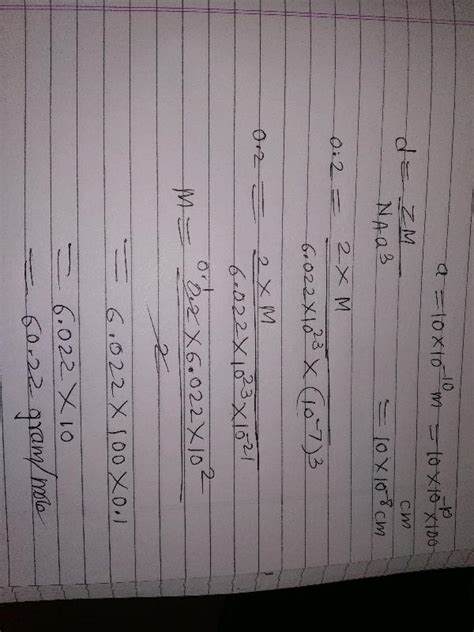 a = 10 × 10⁻¹⁰ m = 10 × 10⁻¹⁰ × 100 cm
= 10 × 10⁻⁸ cm
d = ZM / N_A a³
0.2 = 2 × M / 6.022 × 10²³ × (10⁻⁷)³
0.2 = 2 × M / 6.022 × 10²³ × 10⁻²¹
M = 0.1 0.2 × 6.022 × 10² / 2
= 6.022 × 100 × 0.1
= 6.022 × 10
= 60.22 gram/mole